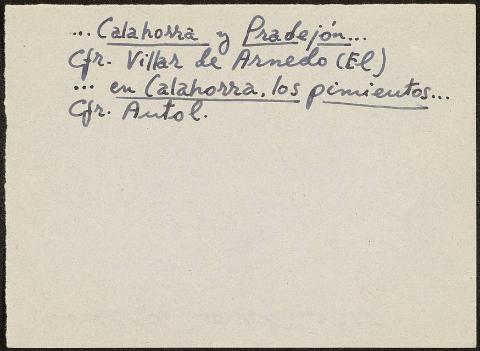 ... Calahorra y Pradejón...
Cfr. Villar de Arnedo (El)
... en Calahorra, los pimientos...
Cfr. Autol.